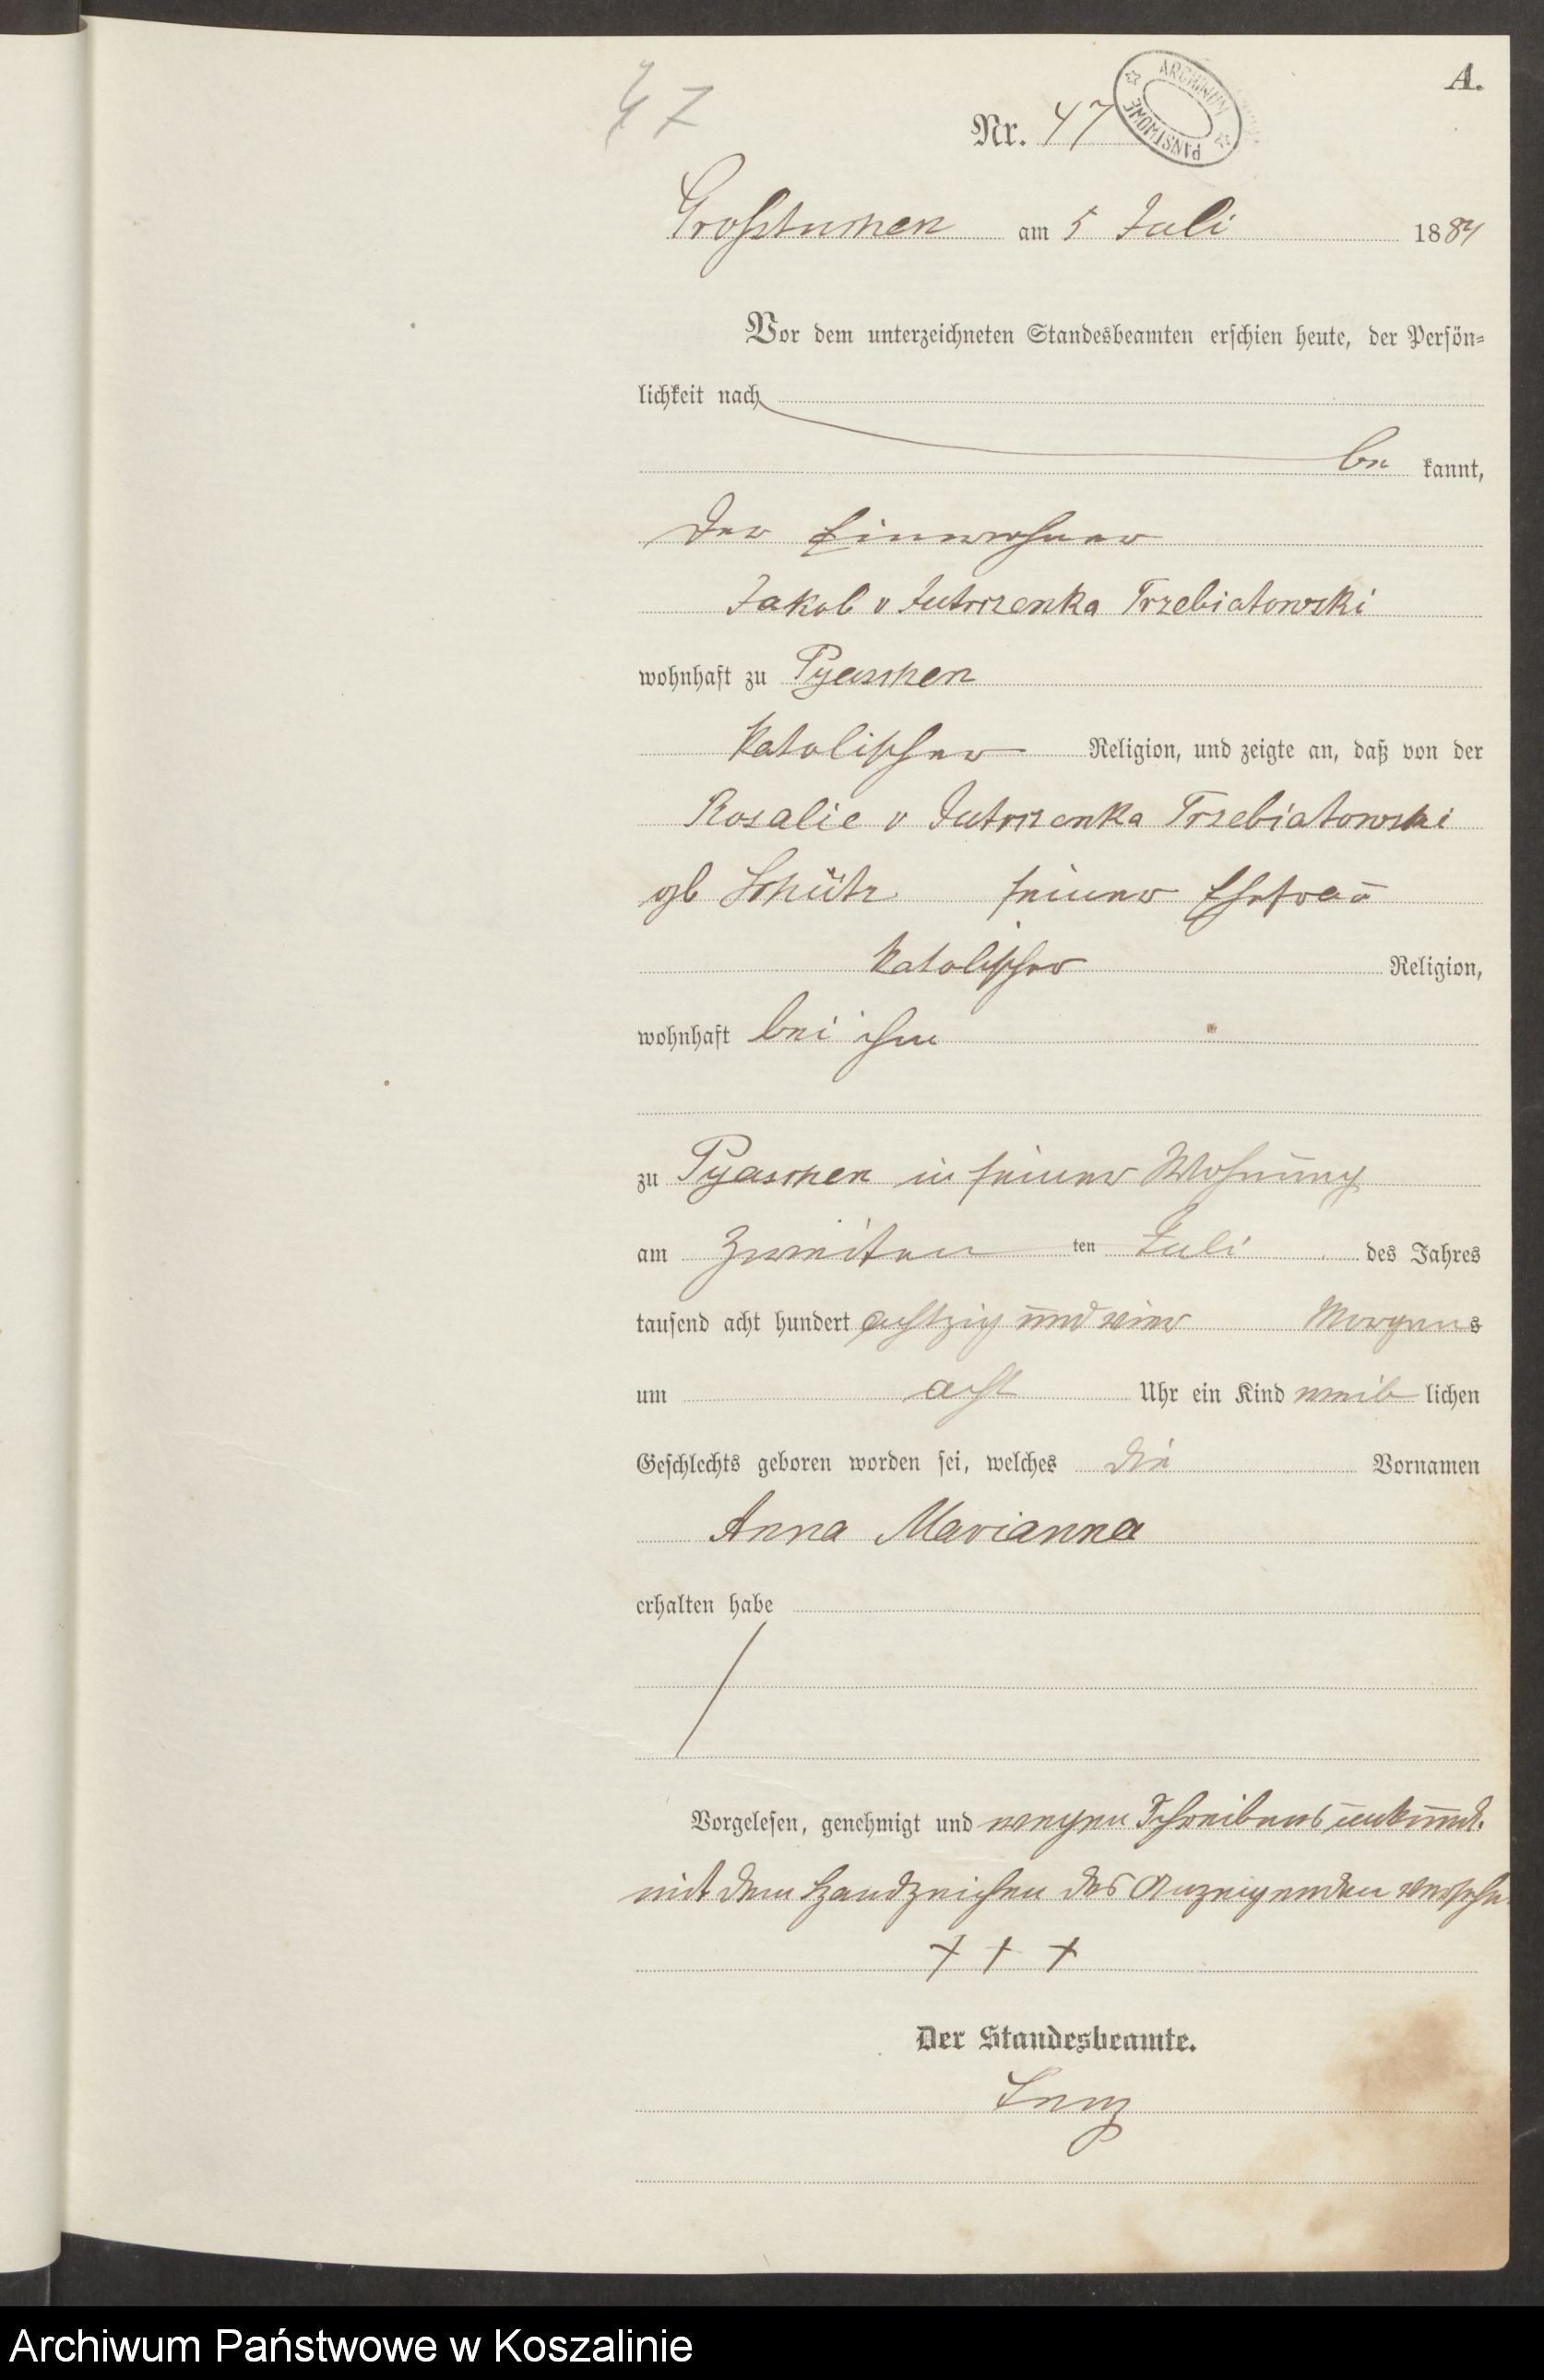 A.
47
Nr. 47
ARCHIWUM PAŃSTWOWE
Großtuchen am 5 Juli 1884
Vor dem unterzeichneten Standesbeamten erschien heute, der Persön=
lichkeit nach
be kannt,
der Einwohner
Jakob v Jutrzenka Trzebiatowski
wohnhaft zu Pyaschen
katolischer Religion, und zeigte an, daß von der
Rosalie v Jutrzenka Trzebiatowski
gb Schütz seiner Ehefrau
katolischer Religion,
wohnhaft bei ihm
zu Pyaschen in seiner Wohnung
am zweiten ten Juli des Jahres
tausend acht hundert achtzig und vier Morgens
um acht Uhr ein Kind weib lichen
Geschlechts geboren worden sei, welches die Vornamen
Anna Marianna
erhalten habe
Vorgelesen, genehmigt und wegen Schreibens unkund.
mit dem Handzeichen des Anzeigenden versehn.
+ + +
Der Standesbeamte.
Archiwum Państwowe w Koszalinie